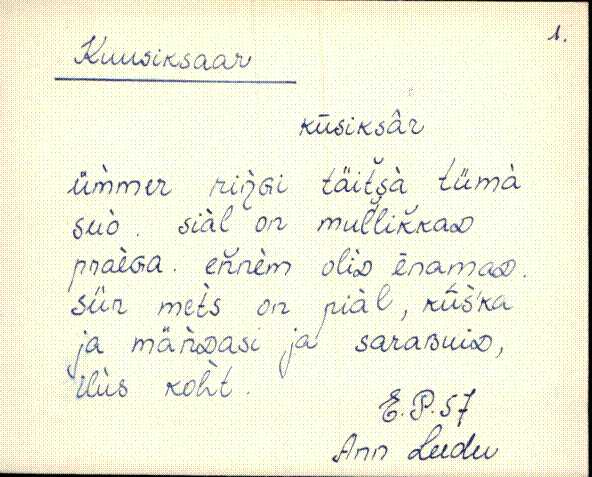 1.
Kuusiksaar
kūsiksâr
üm̀mer riǹɢi täit̆šà tümà
suò. siàl on mul̆likkaᴅ
praèɢa. en̆nèm oliᴅ ēnamaᴅ.
sūr met̀s on piàl, kūs̀ka
ja mäǹᴅasi ja saraʙuiᴅ,
ilùs koh̀t.
E.P. 57
Ann Leedu